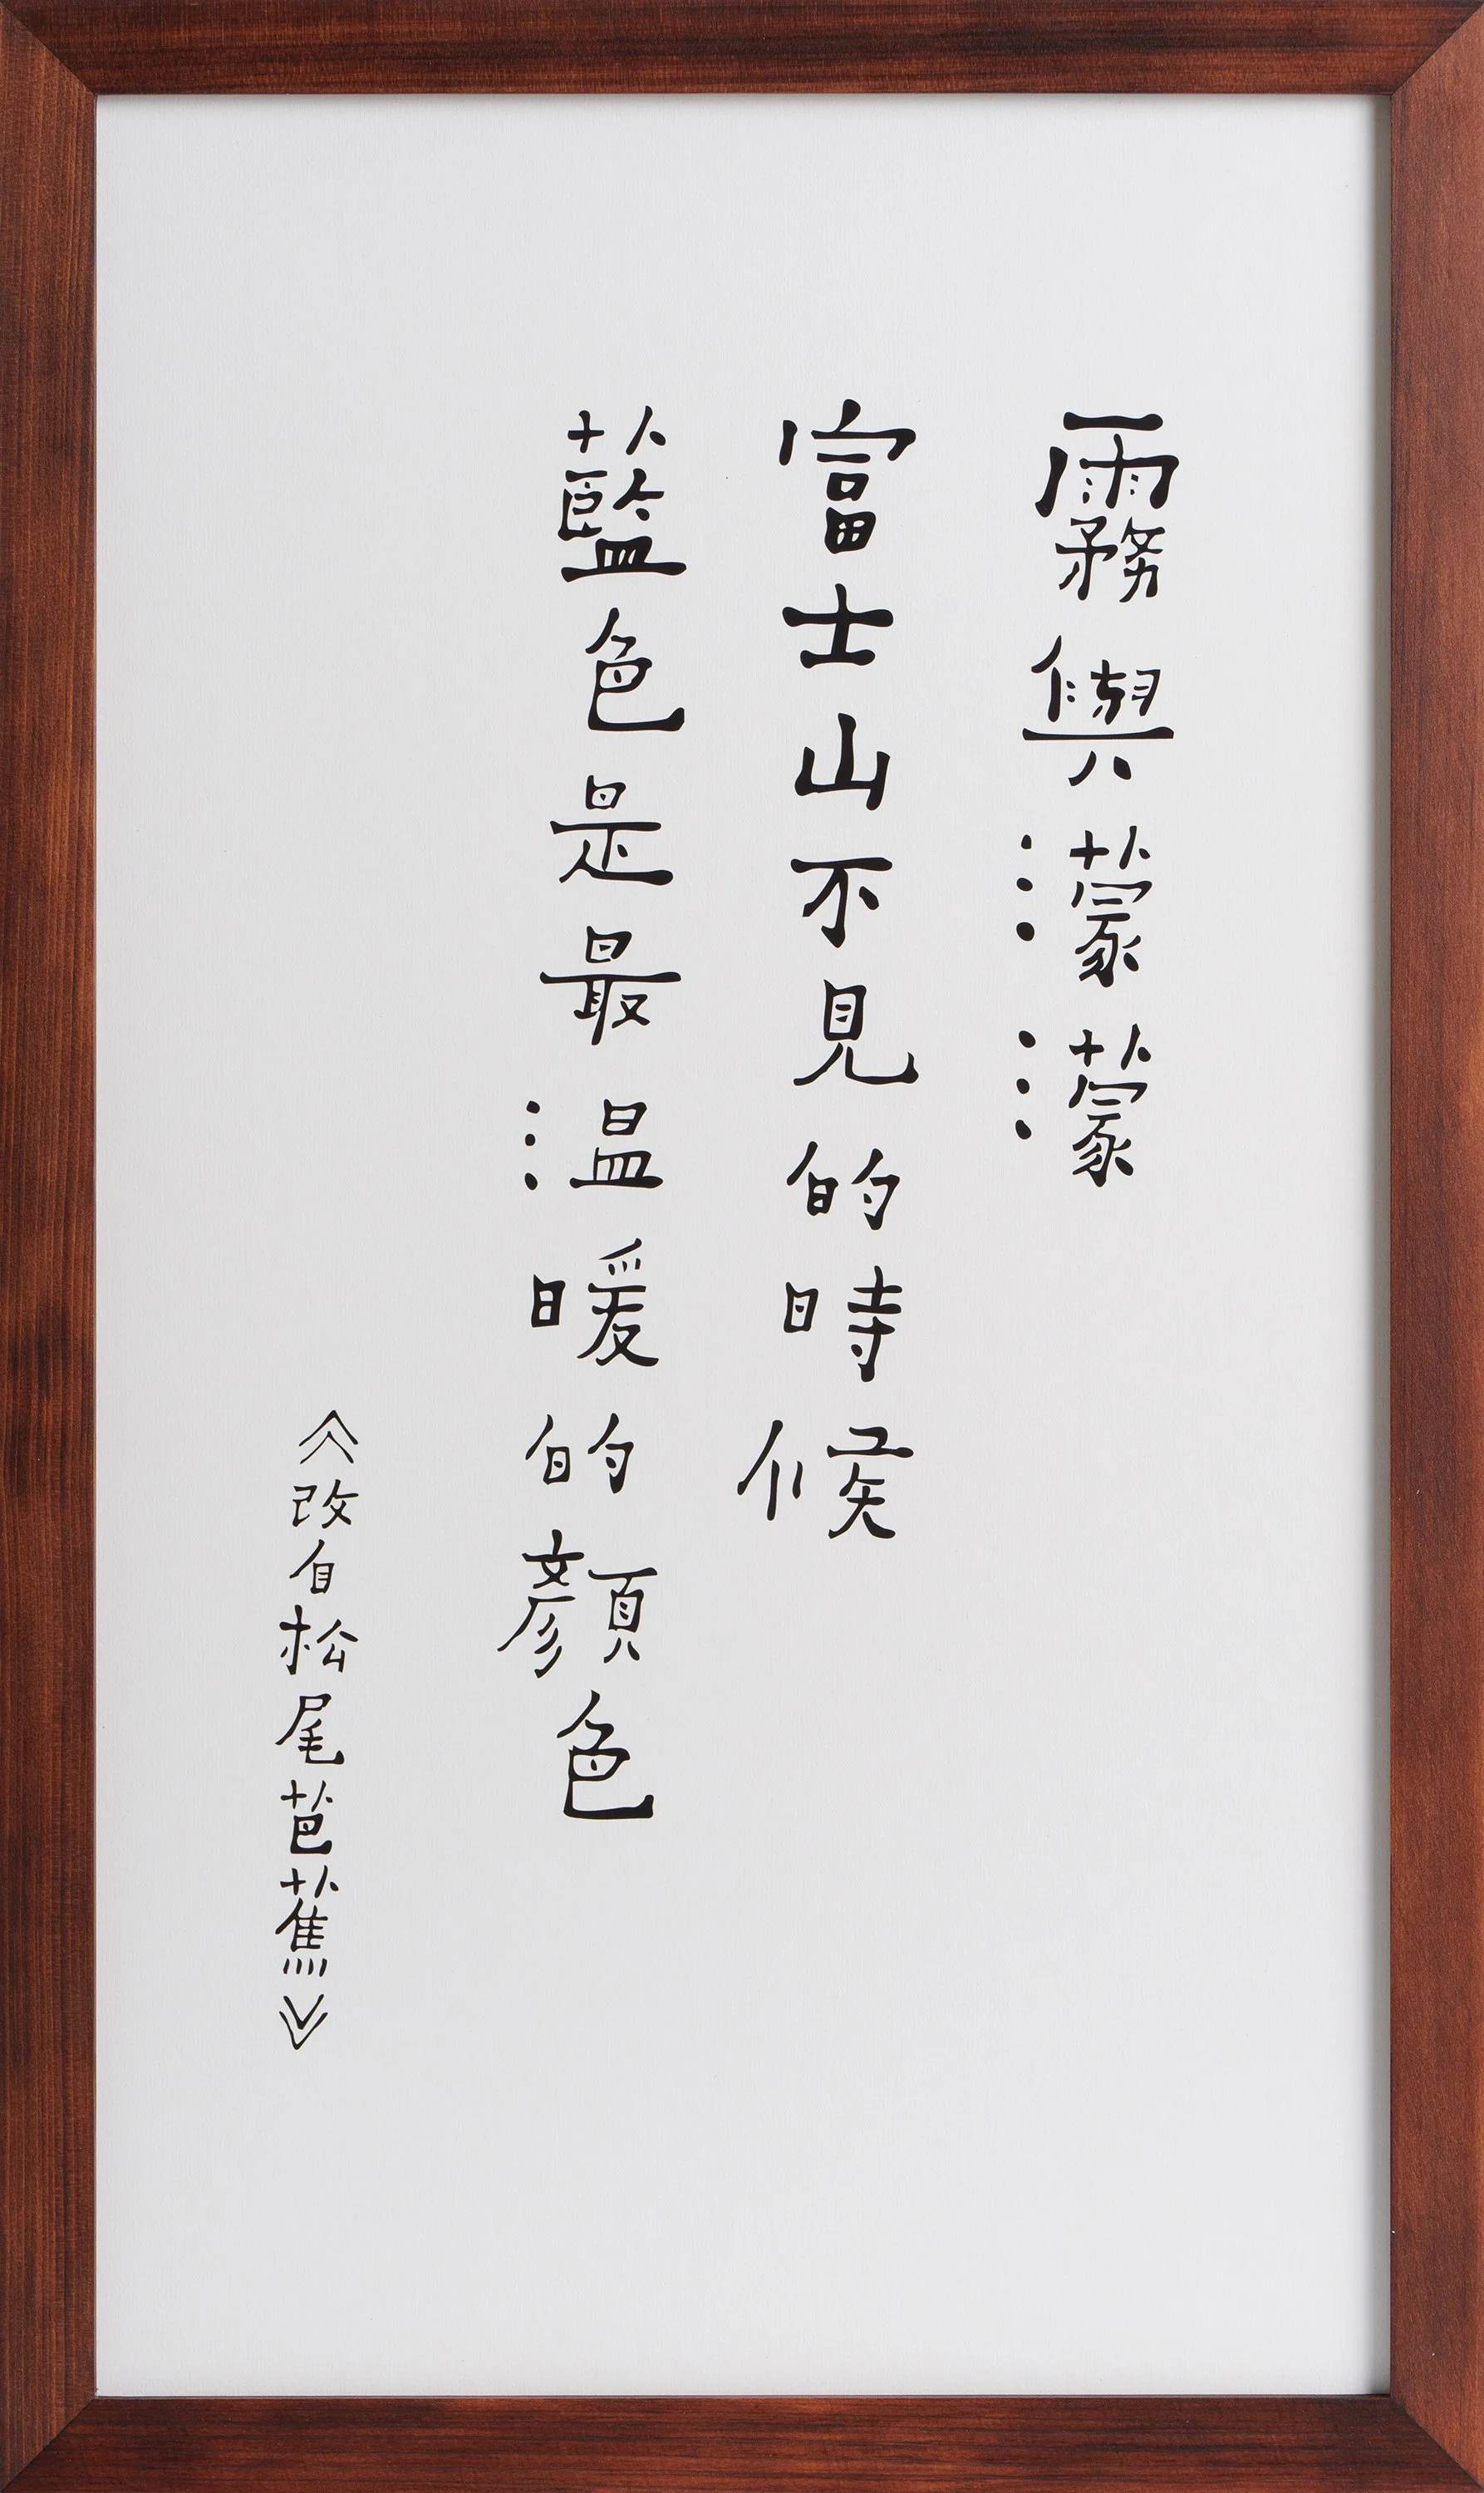 霧與濛濛
富士山不見的時候
藍色是最温暖的顏色
《改自松尾芭蕉》